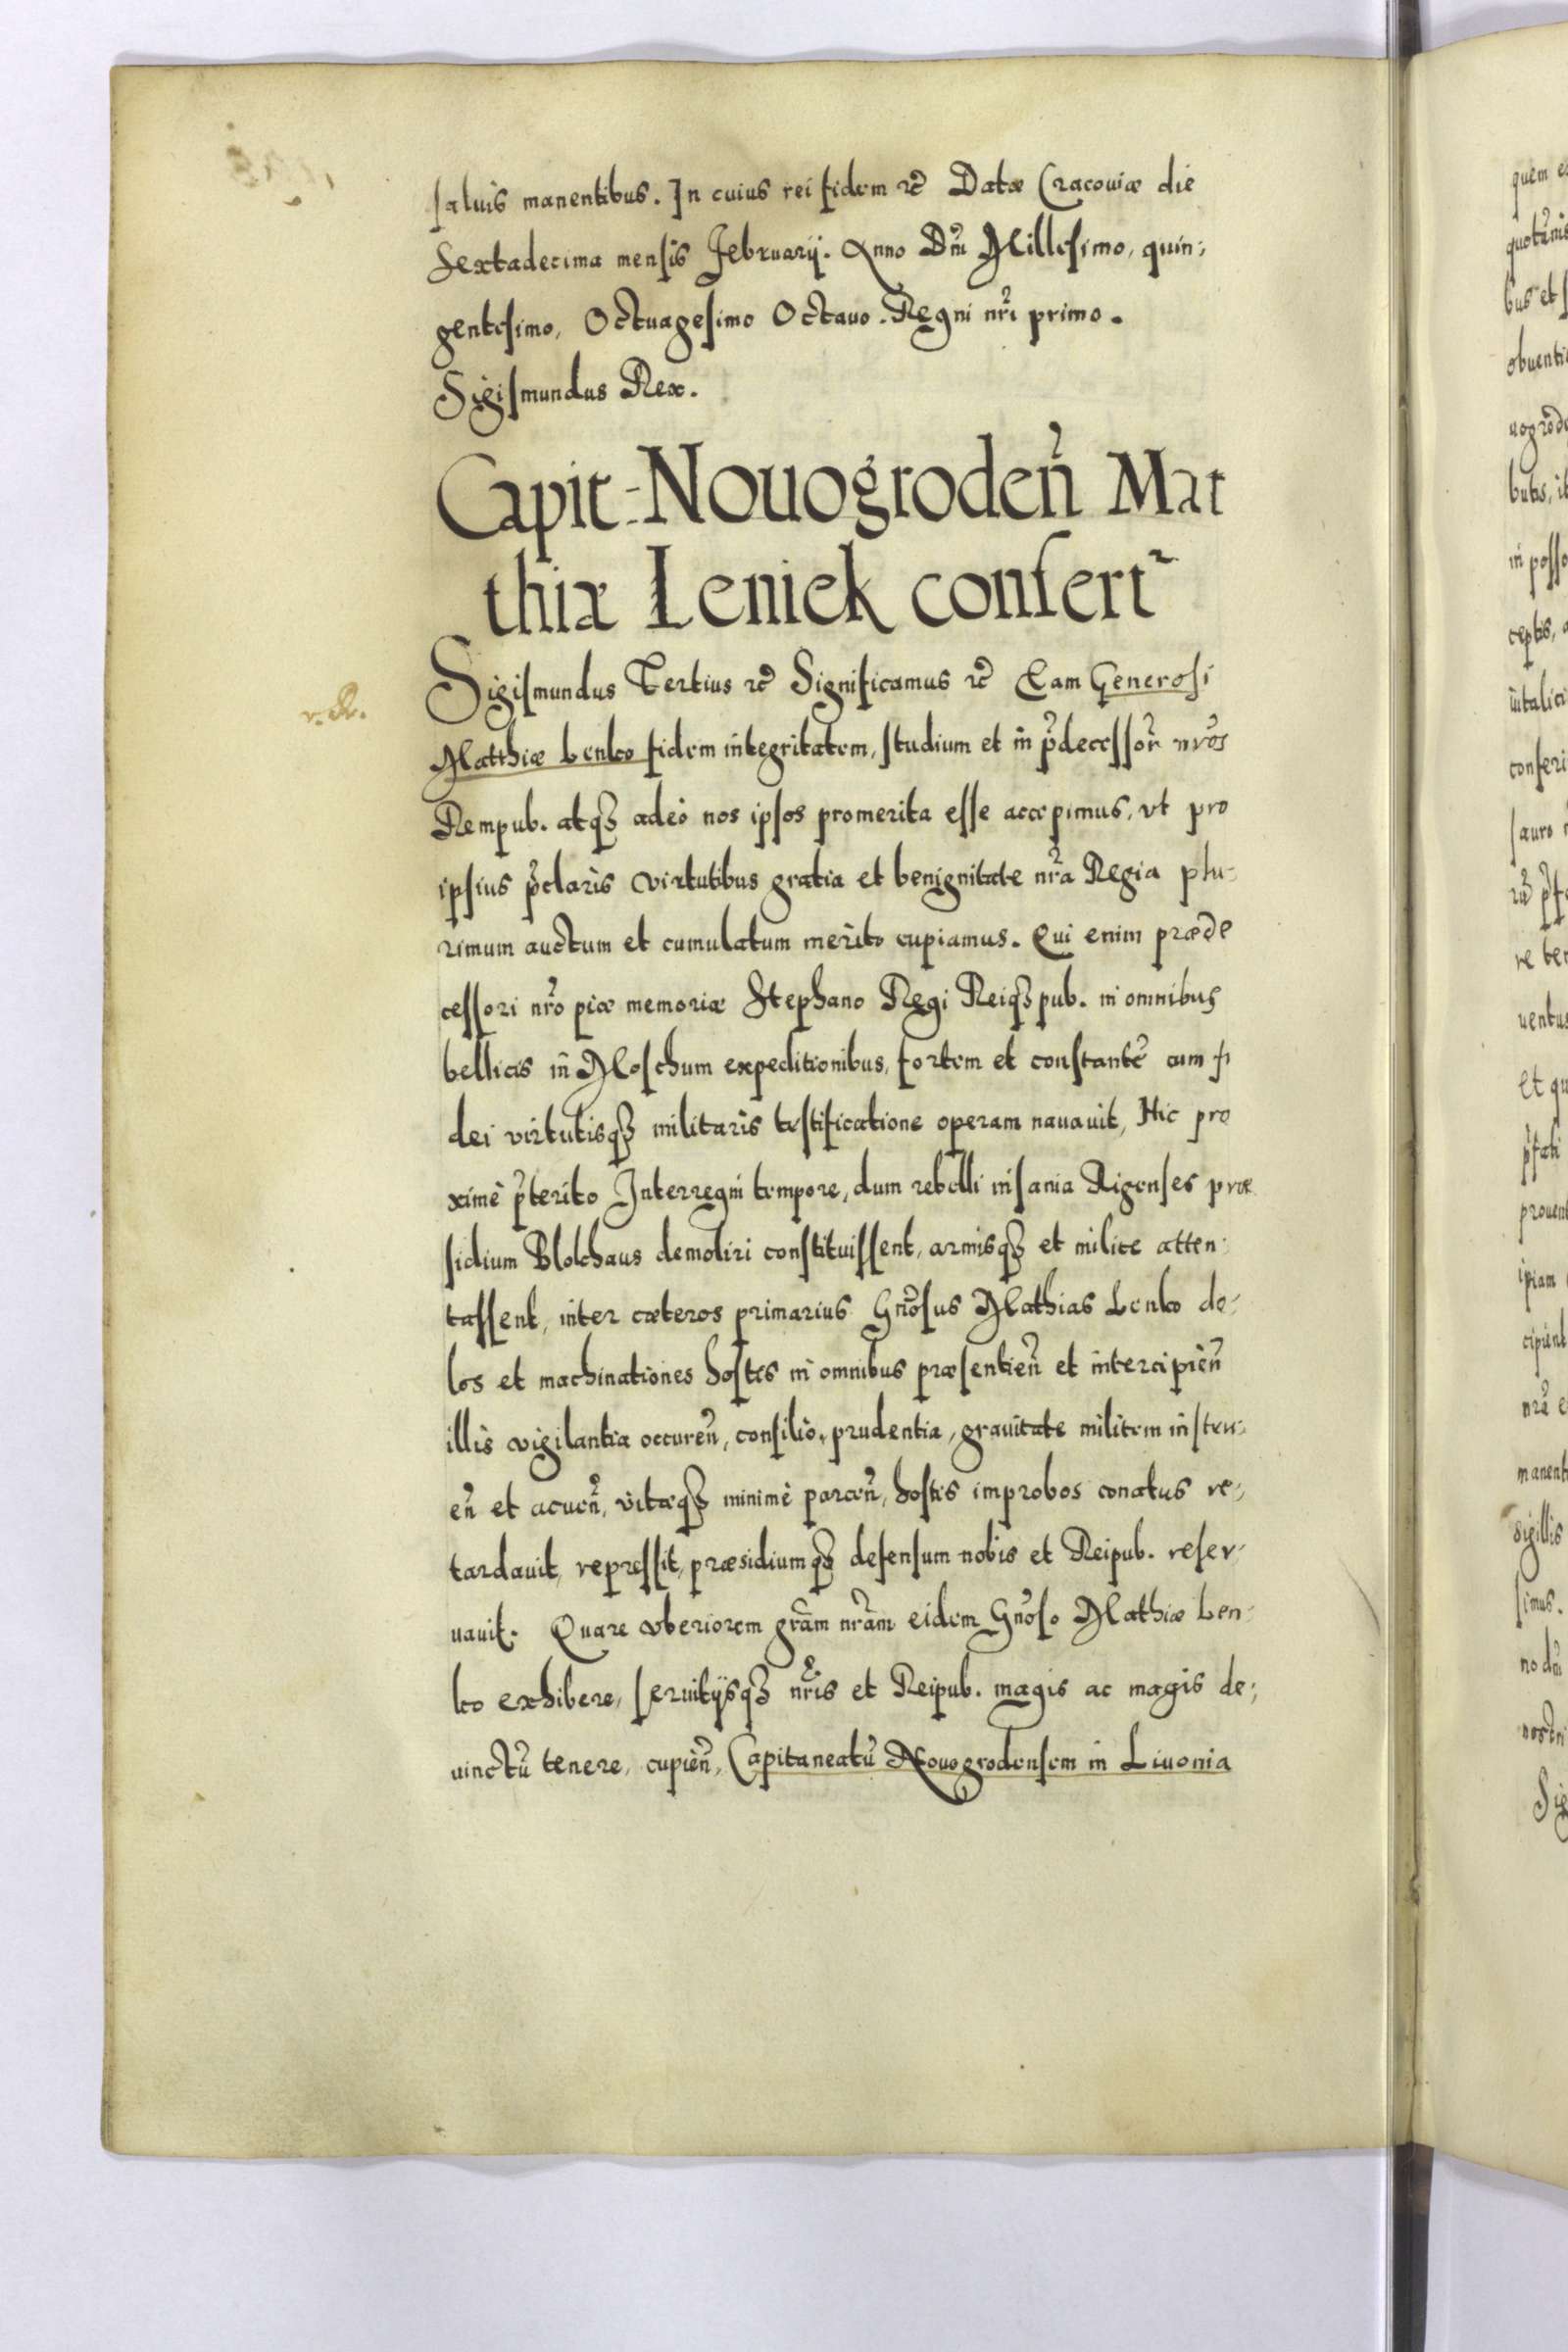 saluis manentibus. In cuius rei fidem etc̃ Datæ Cracouiæ die
Sextadecima mensis February. Anno Dñi Millesimo, quin;
gentesimo, Octuagesimo Octauo. Regni nr̃i primo.
Sigismundus Rex.
Capit-Nouogroden̄ Mat
thiæ Leniek confert
Sigismundus Tertius etc̃ Significamus etc̃ Eam Generosi
v. R.
Matthiæ Lenko fidem integritatem, studium et in p̃decessor̃ nr̃os
Rempub. atqꝫ adeò nos ipsos promerita esse accepimus, vt pro
ipsius p̃claris virtutibus gratia et benignitate nr̃a Regia plu-
rimum auctum et cumulatum merito cupiamus. Qui enim præde
cessori nr̃o piæ memoriæ Stephano Regi Reiqꝫ pub. in omnibus
bellicis in Moschum expeditionibus, fortem et constantẽ cum fi
dei virtutisqꝫ militaris testificatione operam nauauit, Hic pro
ximè p̃terito Interregni tempore, dum rebelli insania Rigenses præ
sidium Blokhaus demoliri constituissent, armisqꝫ et milite atten-
tassent, inter cæteros primarius Gnõsus Mathias Lenko do-
los et machinationes hostis in omnibus præsentien̄ et intercipien̄
illis vigilantia occuren̄, consilio, prudentia, grauitate militem instru-
en̄ et acuen̄, vitæqꝫ minimè parcen̄, hostis improbos conatus re-
tardauit, repressit, præsidiumqꝫ defensum nobis et Reipub. reser-
uauit. Quare vberiorem gr̃am nr̃am eidem Gnõso Mathiæ Len-
ko exhibere, seruitijsqꝫ nr̃is et Reipub. magis ac magis de-
uinctũ tenere, cupien̄, Capitaneatũ Nouogrodensem in Liuonia